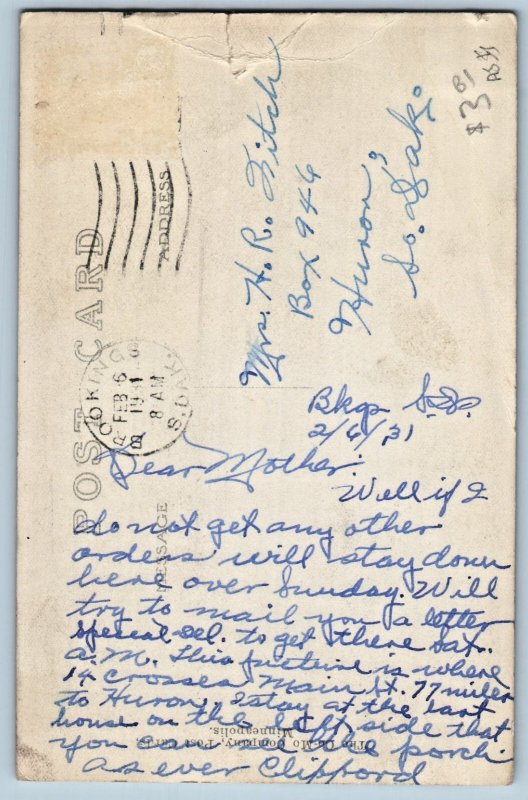 POST CARD
ADDRESS
MESSAGE
BROOKINGS
FEB 6
1931
8 AM
S.DAK.
$3
Mrs. H. R. Fitch
Box 946
Huron,
So. Dak.
Bkgs S.D.
2/6/31
Dear Mother.
Well if I
do not get any other
orders will stay down
here over Sunday. Will
try to mail you a letter
special-del. to get there sat.
a.M. This picture is where
14 crosses Main St. 77 miles
to Huron. I stay at the last
house on the left side that
you can see the porch.
As ever Clifford
The Co-Mo Company, Post Cards,
Minneapolis.